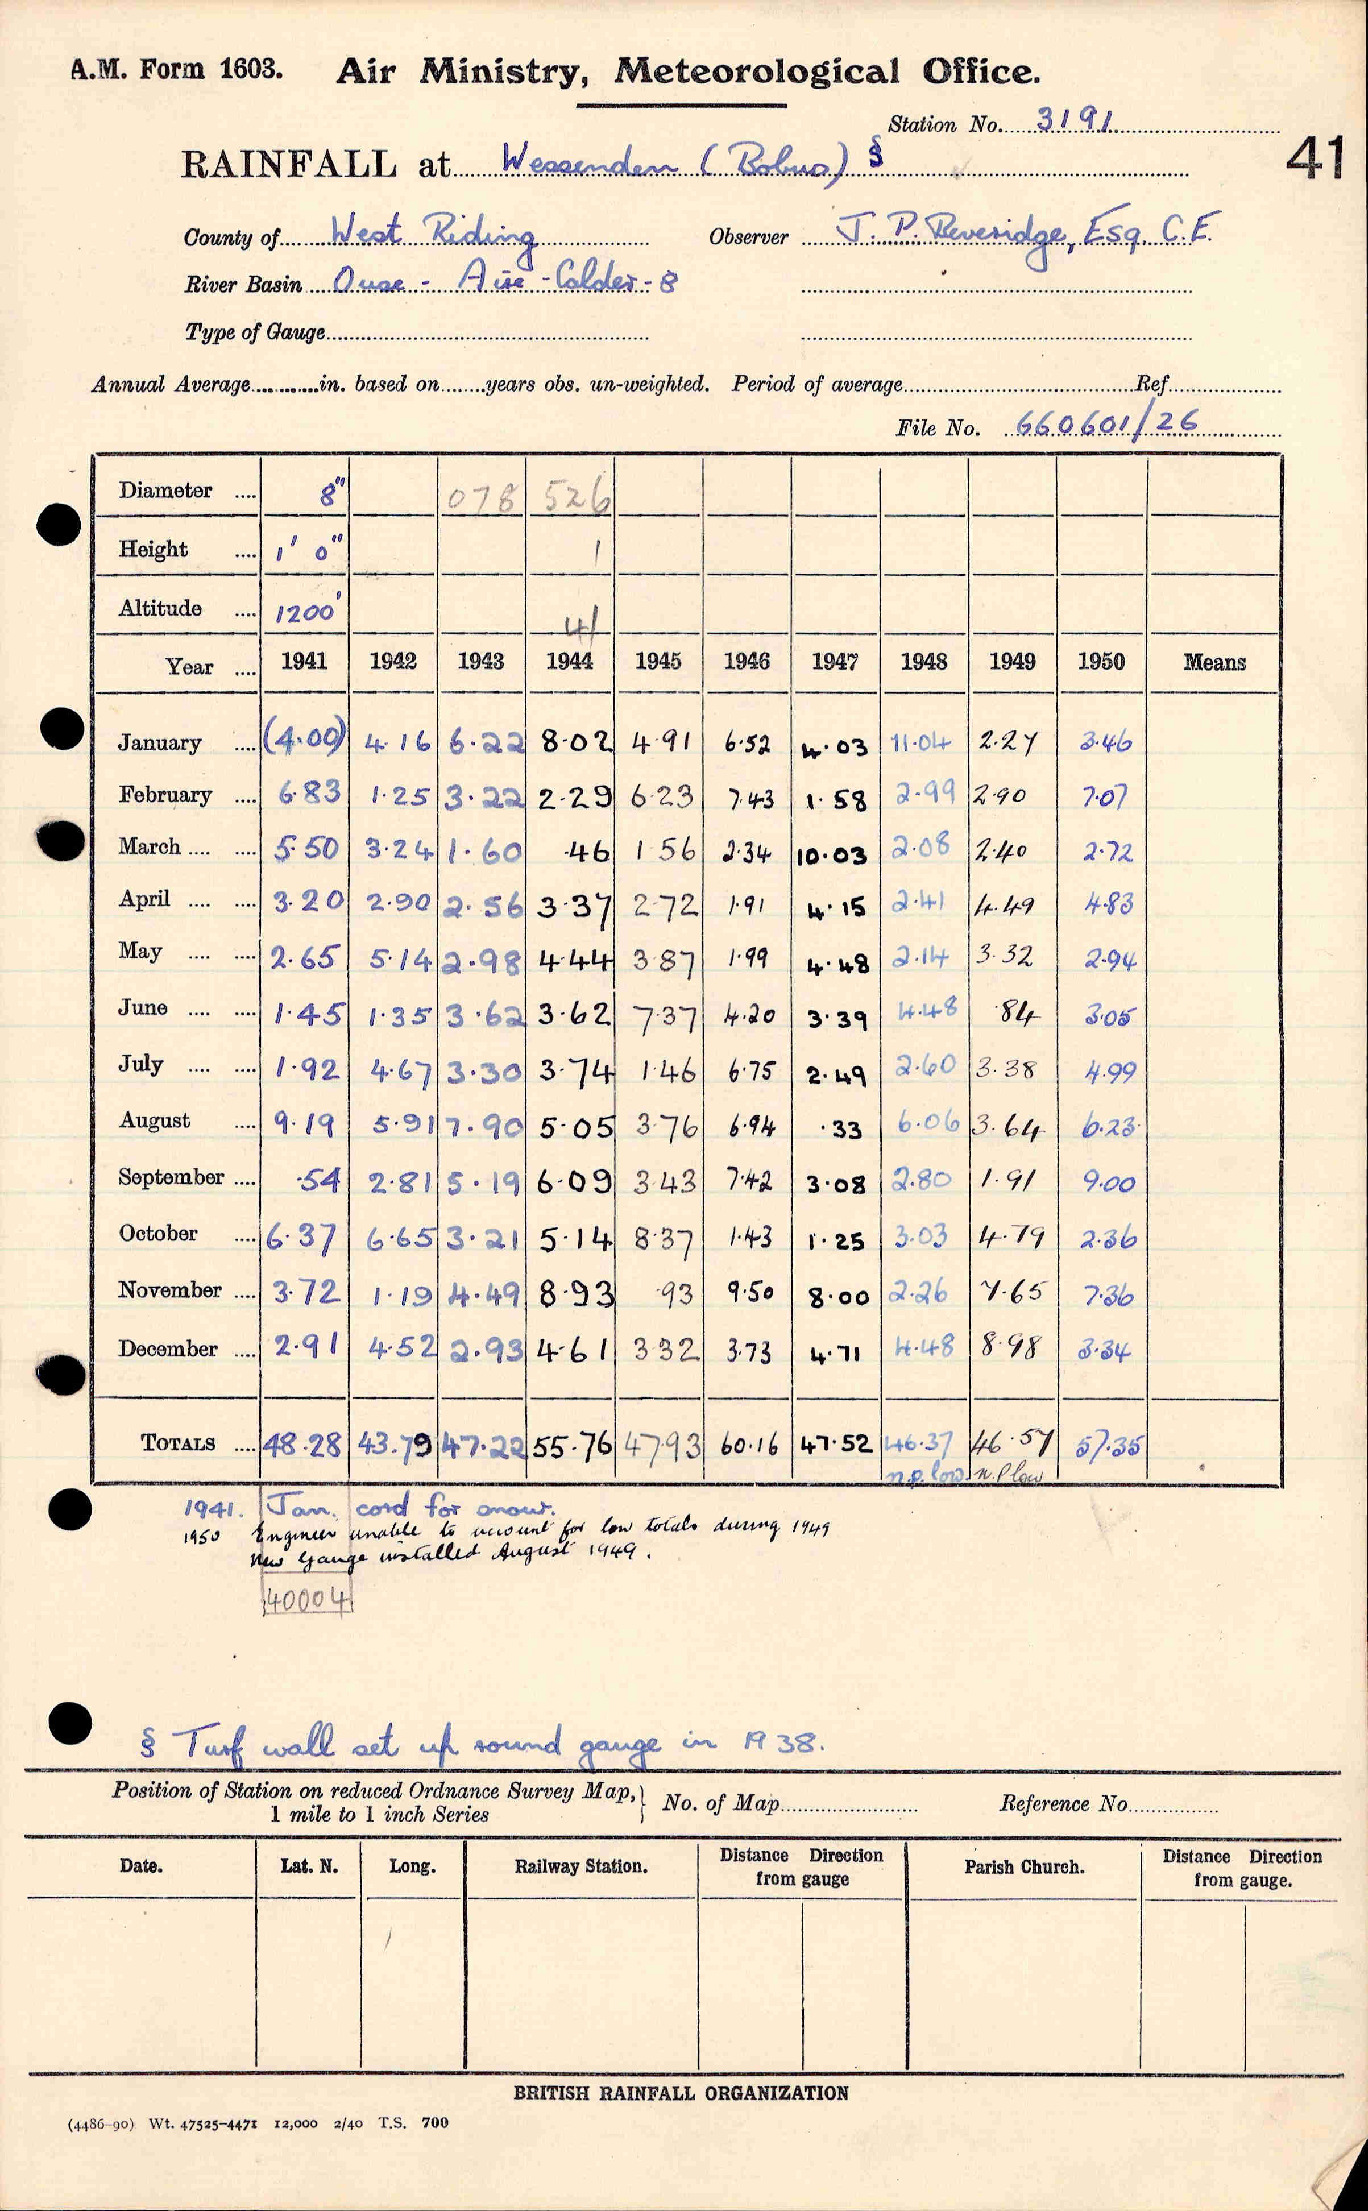 A.M. Form 1603. Air Ministry, Meteorological Office.
Station No. 3191
41
RAINFALL at Wessenden (Bobus) §
County of West Riding Observer J. P. Beveridge, Esq. C.E.
River Basin Ouse - Aire - Calder - 8
Type of Gauge
Annual Average in. based on years obs. un-weighted. Period of average Ref.
File No. 660601/26
Diameter 8" 078 526
Height 1' 0" 1
Altitude 1200' 41
Year 1941 1942 1943 1944 1945 1946 1947 1948 1949 1950 Means
January (4.00) 4.16 6.22 8.02 4.91 6.52 4.03 11.04 2.27 3.46
February 6.83 1.25 3.22 2.29 6.23 7.43 1.58 2.99 2.90 7.07
March 5.50 3.24 1.60 .46 1.56 2.34 10.03 2.08 2.40 2.72
April 3.20 2.90 2.56 3.37 2.72 1.91 4.15 2.41 4.49 4.83
May 2.65 5.14 2.98 4.44 3.87 1.99 4.48 2.14 3.32 2.94
June 1.45 1.35 3.62 3.62 7.37 4.20 3.39 4.48 .84 3.05
July 1.92 4.67 3.30 3.74 1.46 6.75 2.49 2.60 3.38 4.99
August 9.19 5.91 7.90 5.05 3.76 6.94 .33 6.06 3.64 6.23
September .54 2.81 5.19 6.09 3.43 7.42 3.08 2.80 1.91 9.00
October 6.37 6.65 3.21 5.14 8.37 1.43 1.25 3.03 4.79 2.36
November 3.72 1.19 4.49 8.93 .93 9.50 8.00 2.26 7.65 7.36
December 2.91 4.52 2.93 4.61 3.32 3.73 4.71 4.48 8.98 3.34
TOTALS 48.28 43.79 47.22 55.76 47.93 60.16 47.52 46.37 46.57 57.35
n.p. low. n.p low
1941. Jan. cord for snow.
1950 Engineer unable to account for low totals during 1949
New Gauge installed August 1949.
40004
§ Turf wall set up round gauge in 1938.
Position of Station on reduced Ordnance Survey Map, 1 mile to 1 inch Series } No. of Map Reference No.
Date. Lat. N. Long. Railway Station. Distance Direction from gauge Parish Church. Distance Direction from gauge.
BRITISH RAINFALL ORGANIZATION
(4486-90) Wt. 47525-4471 12,000 2/40 T.S. 700